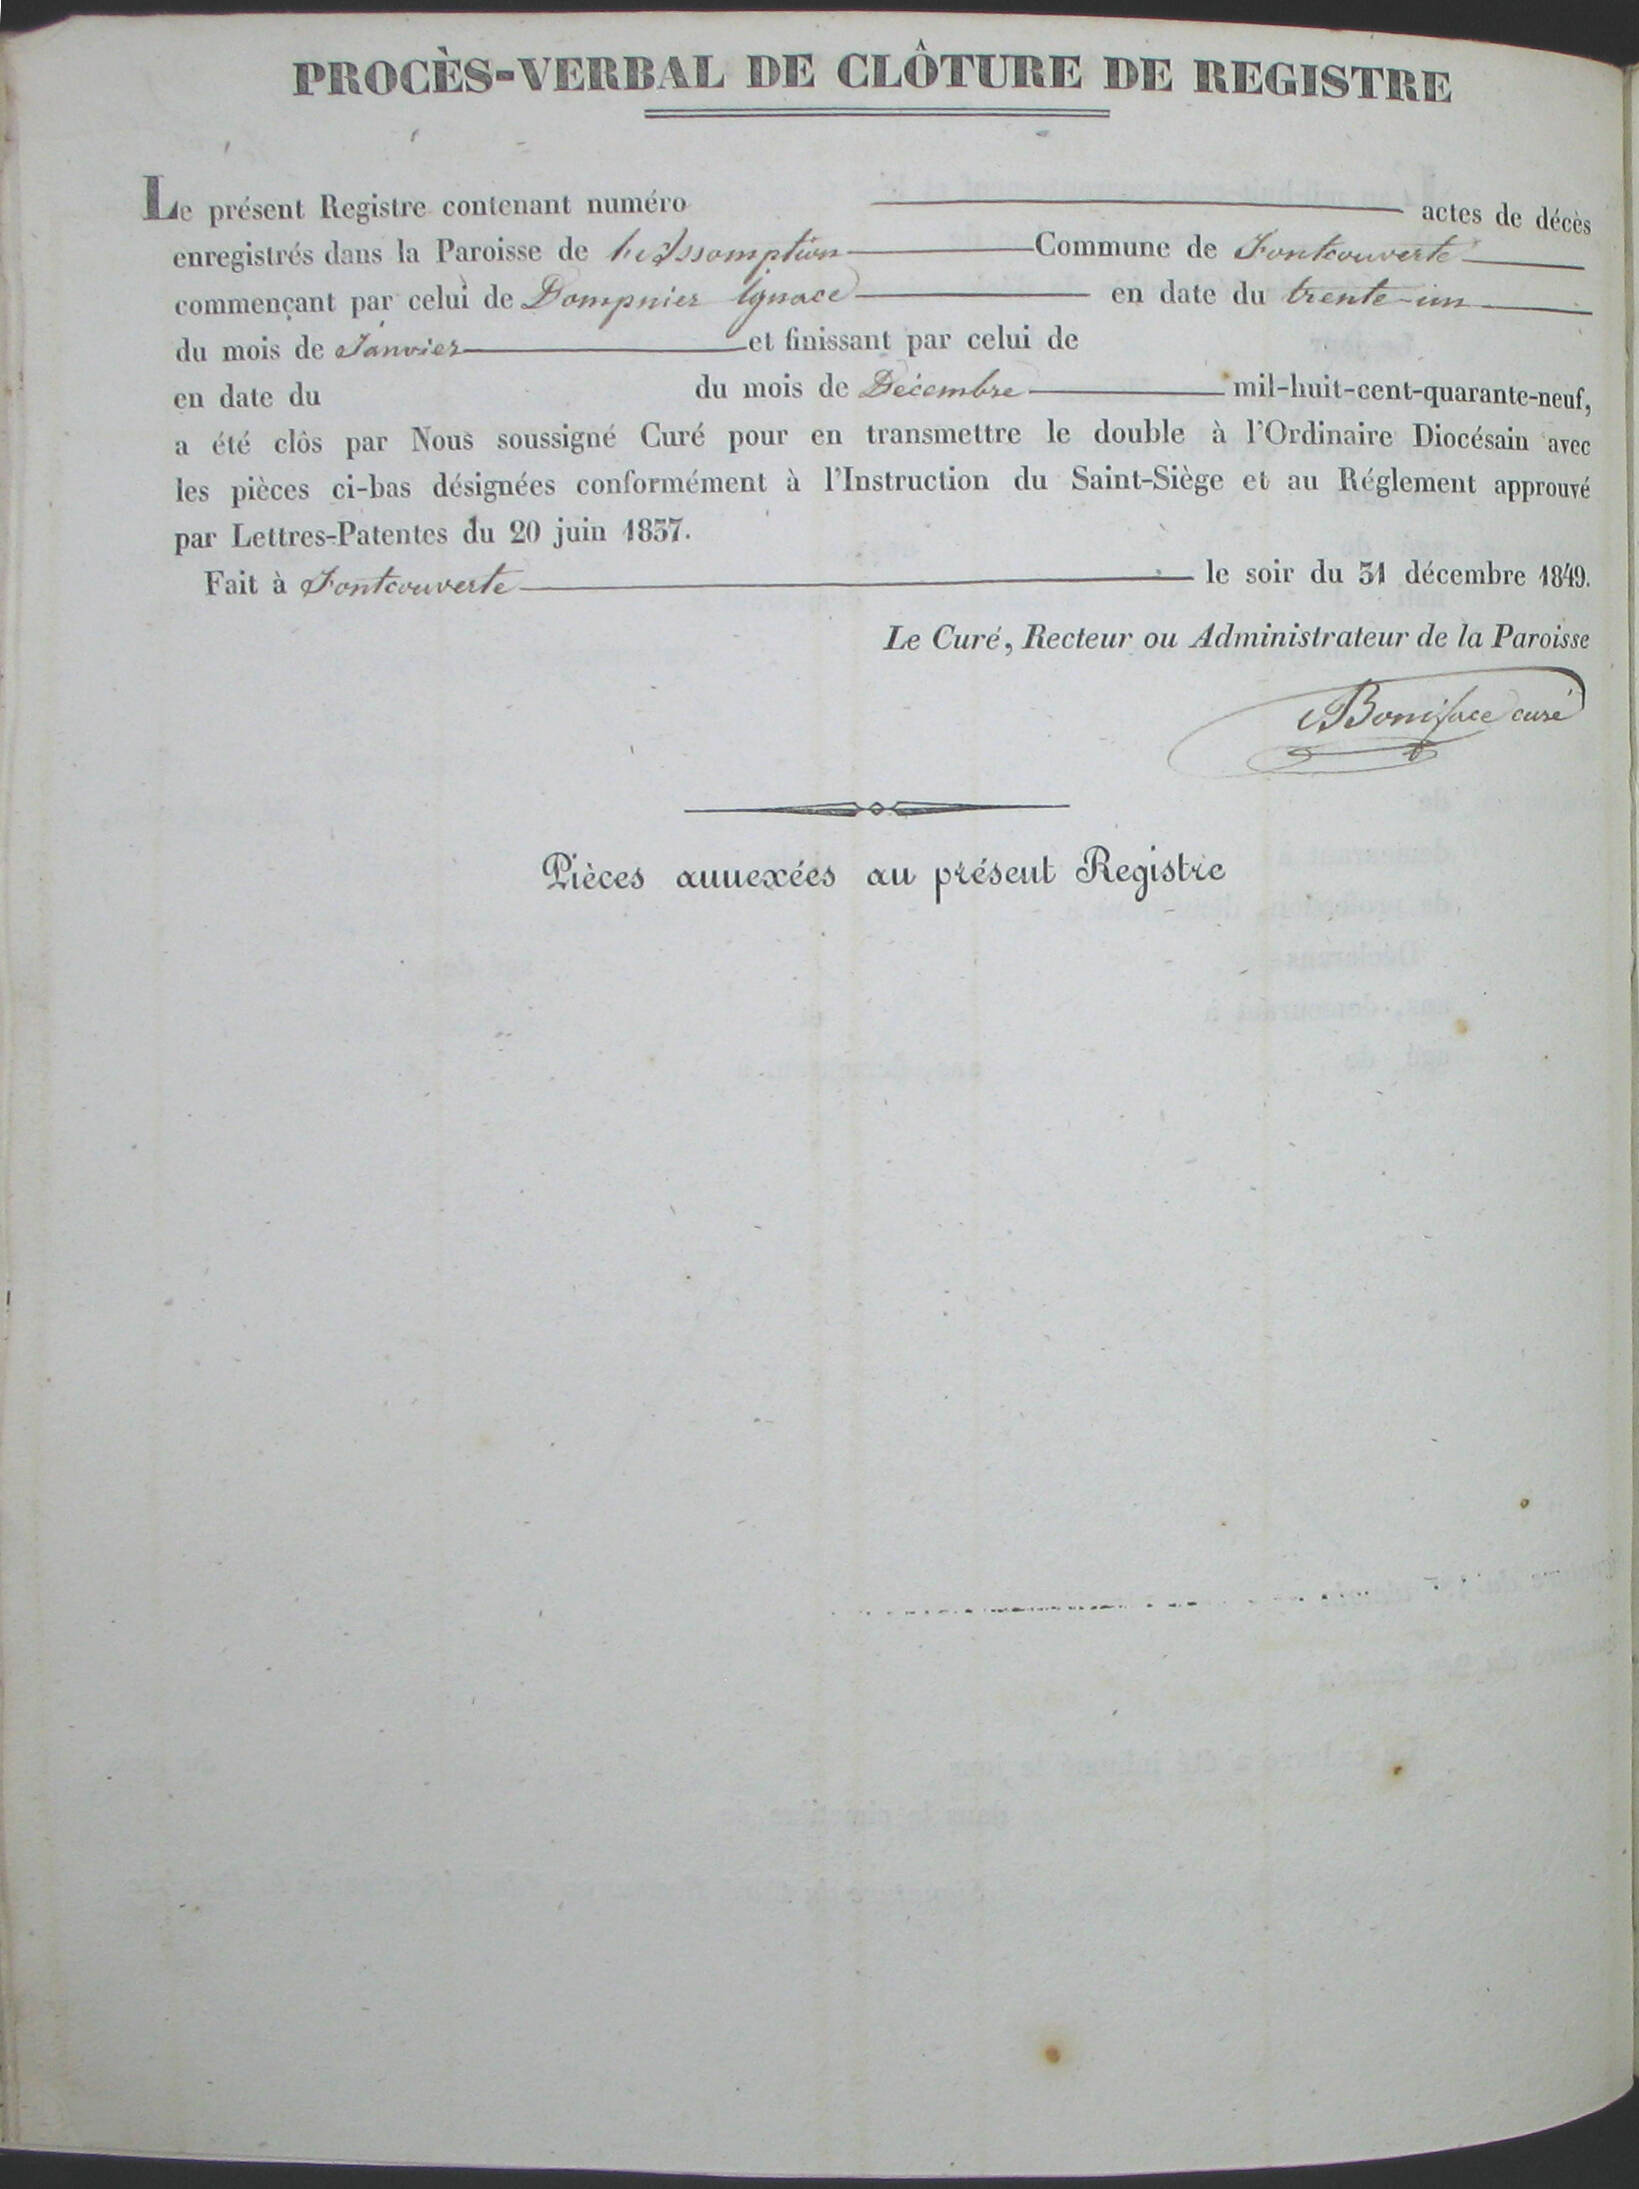 PROCÈS-VERBAL DE CLÔTURE DE REGISTRE
Le présent Registre contenant numéro actes de décès
enregistrés dans la Paroisse de L'Assomption Commune de Fontcouverte
commençant par celui de Dompnier Ignace en date du trente-un
du mois de Janvier et finissant par celui de
en date du du mois de Décembre mil-huit-cent-quarante-neuf,
a été clôs par Nous soussigné Curé pour en transmettre le double à l'Ordinaire Diocésain avec
les pièces ci-bas désignées conformément à l'Instruction du Saint-Siège et au Réglement approuvé
par Lettres-Patentes du 20 juin 1837.
Fait à Fontcouverte le soir du 31 décembre 1849.
Le Curé, Recteur ou Administrateur de la Paroisse
Boniface curé
Pièces annexées au présent Registre